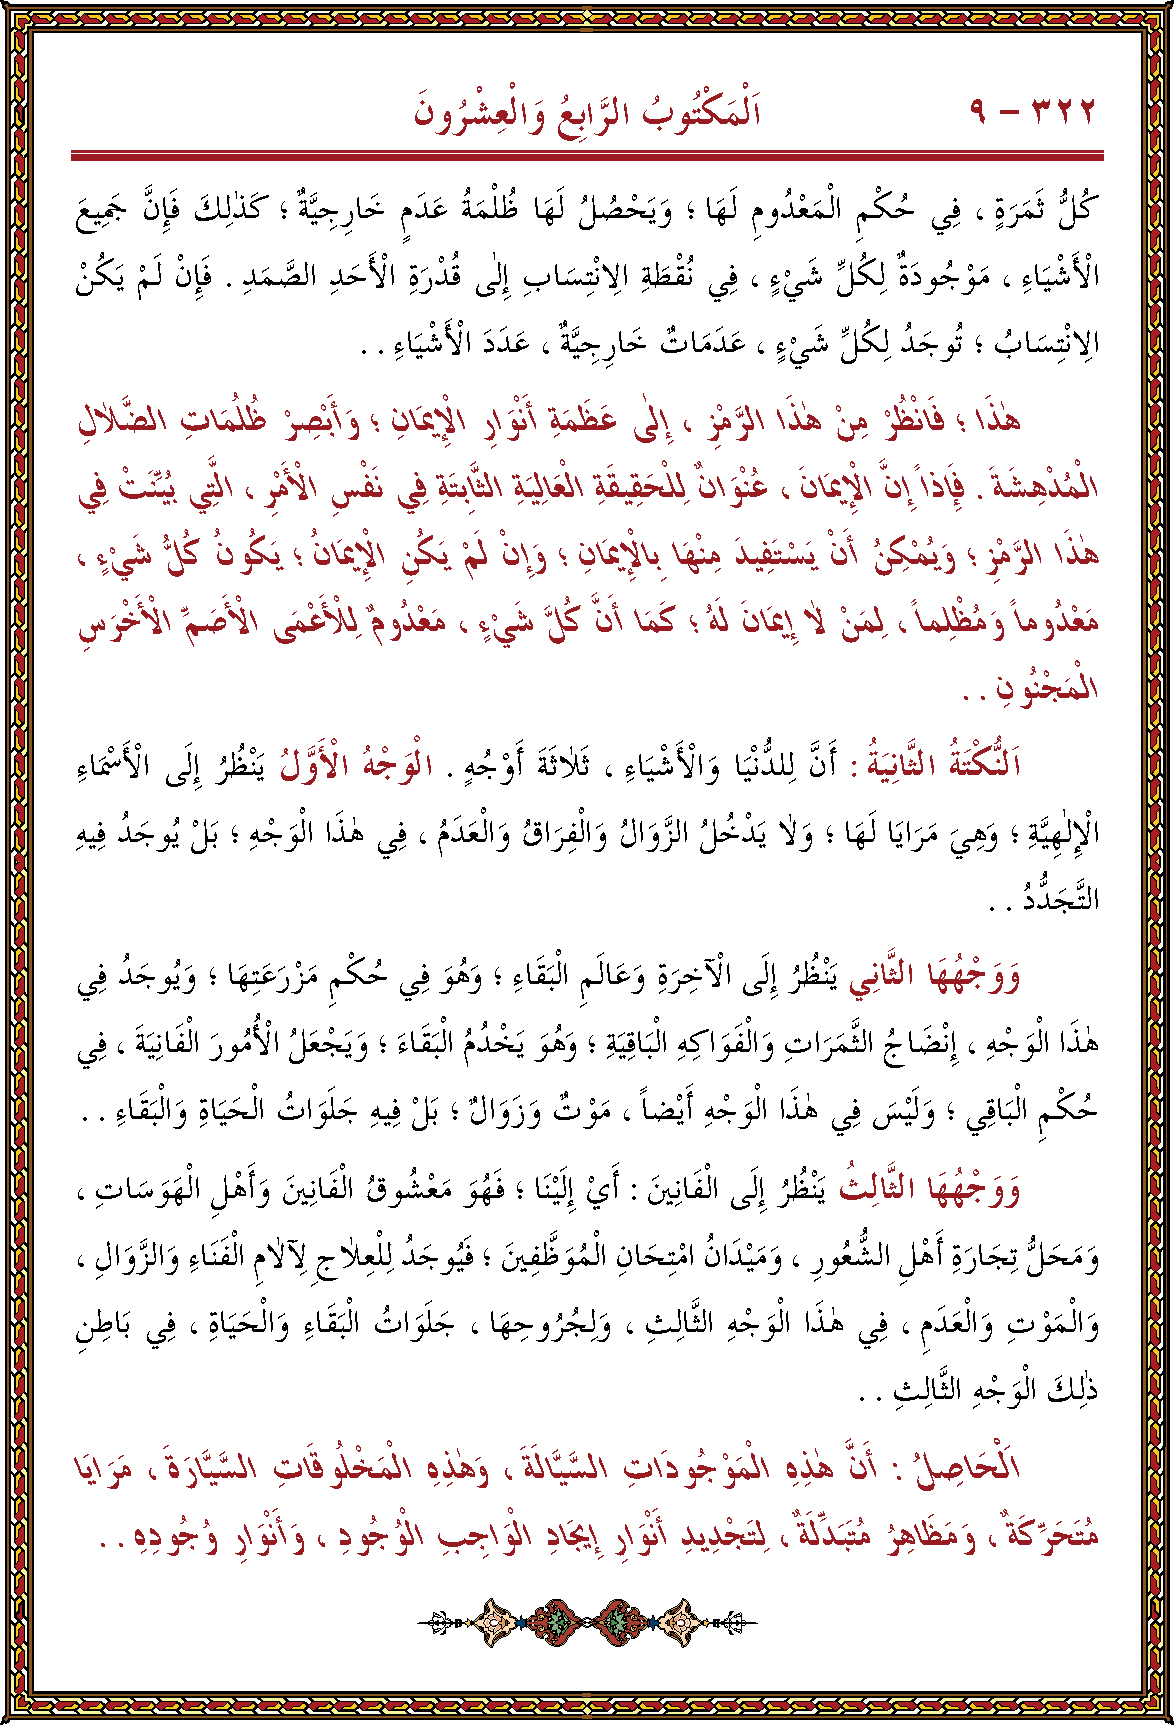 ٣٢٢ – ٩
اَلْمَكْتُوبُ الرَّابِعُ وَالْعِشْرُونَ
كُلُّ ثَمَرَةٍ ، فِي حُكْمِ الْمَعْدُومِ لَهَا ؛ وَيَحْصُلُ لَهَا ظُلْمَةُ عَدَمٍ خَارِجِيَّةٌ ؛ كَذٰلِكَ فَإِنَّ جَمِيعَ
الْأَشْيَاءِ ، مَوْجُودَةٌ لِكُلِّ شَيْءٍ ، فِي نُقْطَةِ الِانْتِسَابِ إِلٰى قُدْرَةِ الْأَحَدِ الصَّمَدِ . فَإِنْ لَمْ يَكُنْ
الِانْتِسَابُ ؛ تُوجَدُ لِكُلِّ شَيْءٍ ، عَدَمَاتٌ خَارِجِيَّةٌ ، عَدَدَ الْأَشْيَاءِ . .
هٰذَا ؛ فَانْظُرْ مِنْ هٰذَا الرَّمْزِ ، إِلٰى عَظَمَةِ أَنْوَارِ الْإِيمَانِ ؛ وَأَبْصِرْ ظُلُمَاتِ الضَّلَالِ
الْمُدْهِشَةَ . فَإِذاً إِنَّ الْإِيمَانَ ، عُنْوَانٌ لِلْحَقِيقَةِ الْعَالِيَةِ الثَّابِتَةِ فِي نَفْسِ الْأَمْرِ ، الَّتِي بُيِّنَتْ فِي
هٰذَا الرَّمْزِ ؛ وَيُمْكِنُ أَنْ يَسْتَفِيدَ مِنْهَا بِالْإِيمَانِ ؛ وَإِنْ لَمْ يَكُنِ الْإِيمَانُ ؛ يَكُونُ كُلُّ شَيْءٍ ،
مَعْدُوماً وَمُظْلِماً ، لِمَنْ لَا إِيمَانَ لَهُ ؛ كَمَا أَنَّ كُلَّ شَيْءٍ ، مَعْدُومٌ لِلْأَعْمَى الْأَصَمِّ الْأَخْرَسِ
الْمَجْنُونِ . .
اَلنُّكْتَةُ الثَّانِيَةُ : أَنَّ لِلدُّنْيَا وَالْأَشْيَاءِ ، ثَلَاثَةَ أَوْجُهٍ . الْوَجْهُ الْأَوَّلُ يَنْظُرُ إِلَى الْأَسْمَاءِ
الْإِلٰهِيَّةِ ؛ وَهِيَ مَرَايَا لَهَا ؛ وَلَا يَدْخُلُ الزَّوَالُ وَالْفِرَاقُ وَالْعَدَمُ ، فِي هٰذَا الْوَجْهِ ؛ بَلْ يُوجَدُ فِيهِ
التَّجَدُّدُ . .
وَوَجْهُهَا الثَّانِي يَنْظُرُ إِلَى الْآخِرَةِ وَعَالَمِ الْبَقَاءِ ؛ وَهُوَ فِي حُكْمِ مَزْرَعَتِهَا ؛ وَيُوجَدُ فِي
هٰذَا الْوَجْهِ ، إِنْضَاجُ الثَّمَرَاتِ وَالْفَوَاكِهِ الْبَاقِيَةِ ؛ وَهُوَ يَخْدُمُ الْبَقَاءَ ؛ وَيَجْعَلُ الْأُمُورَ الْفَانِيَةَ ، فِي
حُكْمِ الْبَاقِي ؛ وَلَيْسَ فِي هٰذَا الْوَجْهِ أَيْضاً ، مَوْتٌ وَزَوَالٌ ؛ بَلْ فِيهِ جَلَوَاتُ الْحَيَاةِ وَالْبَقَاءِ . .
وَوَجْهُهَا الثَّالِثُ يَنْظُرُ إِلَى الْفَانِينَ : أَيْ إِلَيْنَا ؛ فَهُوَ مَعْشُوقُ الْفَانِينَ وَأَهْلِ الْهَوَسَاتِ ،
وَمَحَلُّ تِجَارَةِ أَهْلِ الشُّعُورِ ، وَمَيْدَانُ امْتِحَانِ الْمُوَظَّفِينَ ؛ فَيُوجَدُ لِلْعِلَاجِ لِآلَامِ الْفَنَاءِ وَالزَّوَالِ ،
وَالْمَوْتِ وَالْعَدَمِ ، فِي هٰذَا الْوَجْهِ الثَّالِثِ ، وَلِجُرُوحِهَا ، جَلَوَاتُ الْبَقَاءِ وَالْحَيَاةِ ، فِي بَاطِنِ
ذٰلِكَ الْوَجْهِ الثَّالِثِ . .
اَلْحَاصِلُ : أَنَّ هٰذِهِ الْمَوْجُودَاتِ السَّيَّالَةَ ، وَهٰذِهِ الْمَخْلُوقَاتِ السَّيَّارَةَ ، مَرَايَا
مُتَحَرِّكَةٌ ، وَمَظَاهِرُ مُتَبَدِّلَةٌ ، لِتَجْدِيدِ أَنْوَارِ إِيجَادِ الْوَاجِبِ الْوُجُودِ ، وَأَنْوَارِ وُجُودِهِ . .